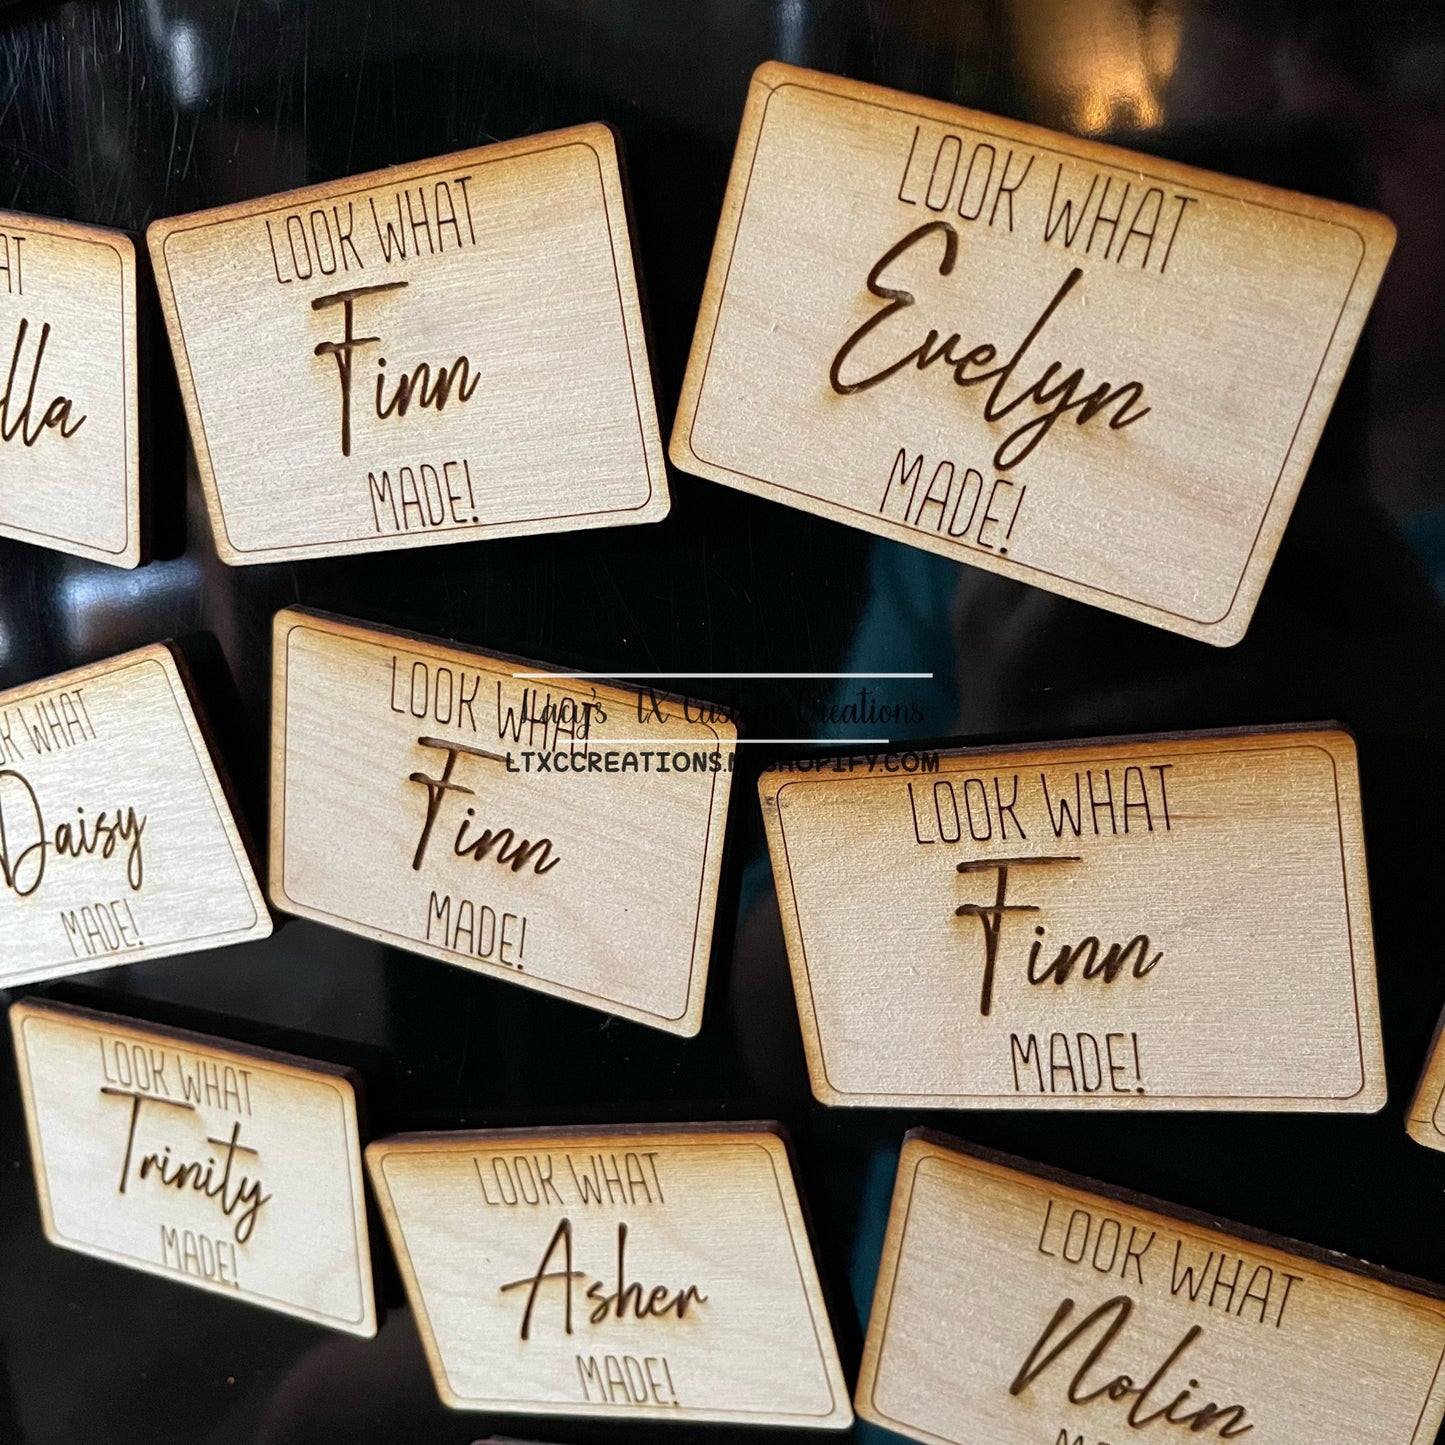 AT
lla
LOOK WHAT
Finn
MADE!
LOOK WHAT
Evelyn
MADE!
OK WHAT
Daisy
MADE!
LOOK WHAT
Finn
MADE!
Lacy's TX Custom Creations
LTXCCREATIONS.MYSHOPIFY.COM
LOOK WHAT
Finn
MADE!
LOOK WHAT
Trinity
MADE!
LOOK WHAT
Asher
MADE!
LOOK WHAT
Nolin